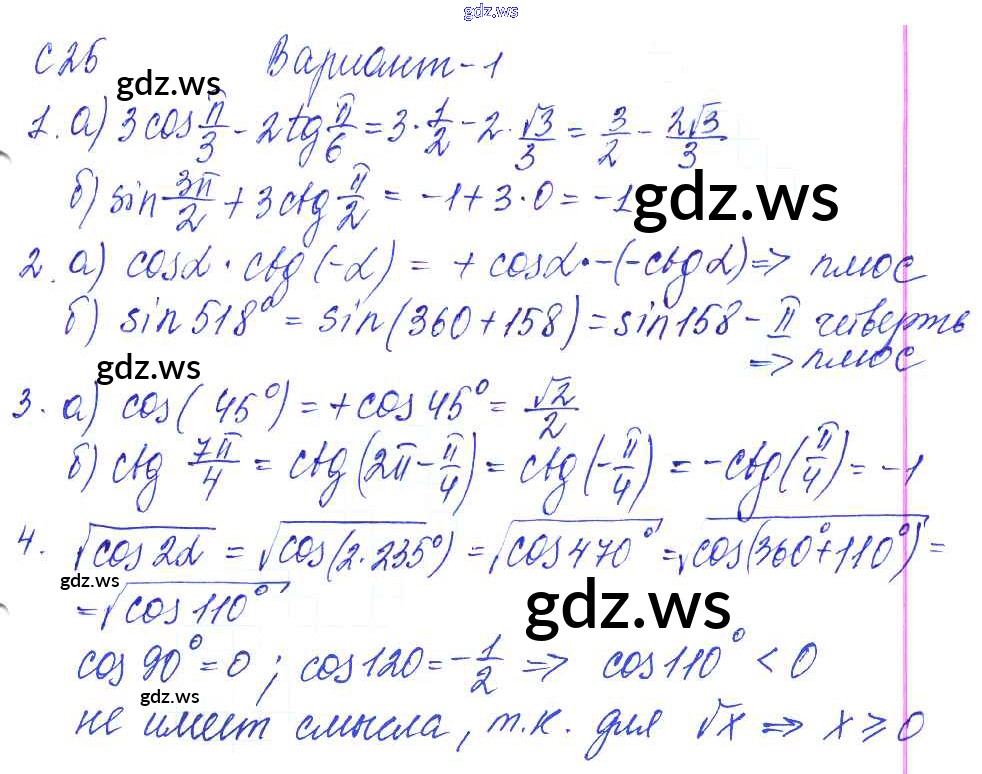 gdz.ws
С 25 Вариант-1
gdz.ws
1. а) 3 cos π/3 - 2 tg π/6 = 3 · 1/2 - 2 · √3/3 = 3/2 - 2√3/3
б) sin 3π/2 + 3 ctg π/2 = -1 + 3 · 0 = -1
gdz.ws
2. а) cosα · ctg(-α) = + cosα · -(-ctgα) => плюс
б) sin 518° = sin(360+158) = sin158 - II четверть
=> плюс
gdz.ws
3. а) cos( 45°) = + cos 45° = √2/2
б) ctg 7π/4 = ctg(2π - π/4) = ctg(-π/4) = -ctg(π/4) = -1
4. √cos2α = √cos(2·235°) = √cos470° = √cos(360°+110°) =
gdz.ws
= √cos110°
gdz.ws
cos 90° = 0 ; cos120 = -1/2 => cos110° < 0
gdz.ws
не имеет смысла, т.к. для √x => x ≥ 0